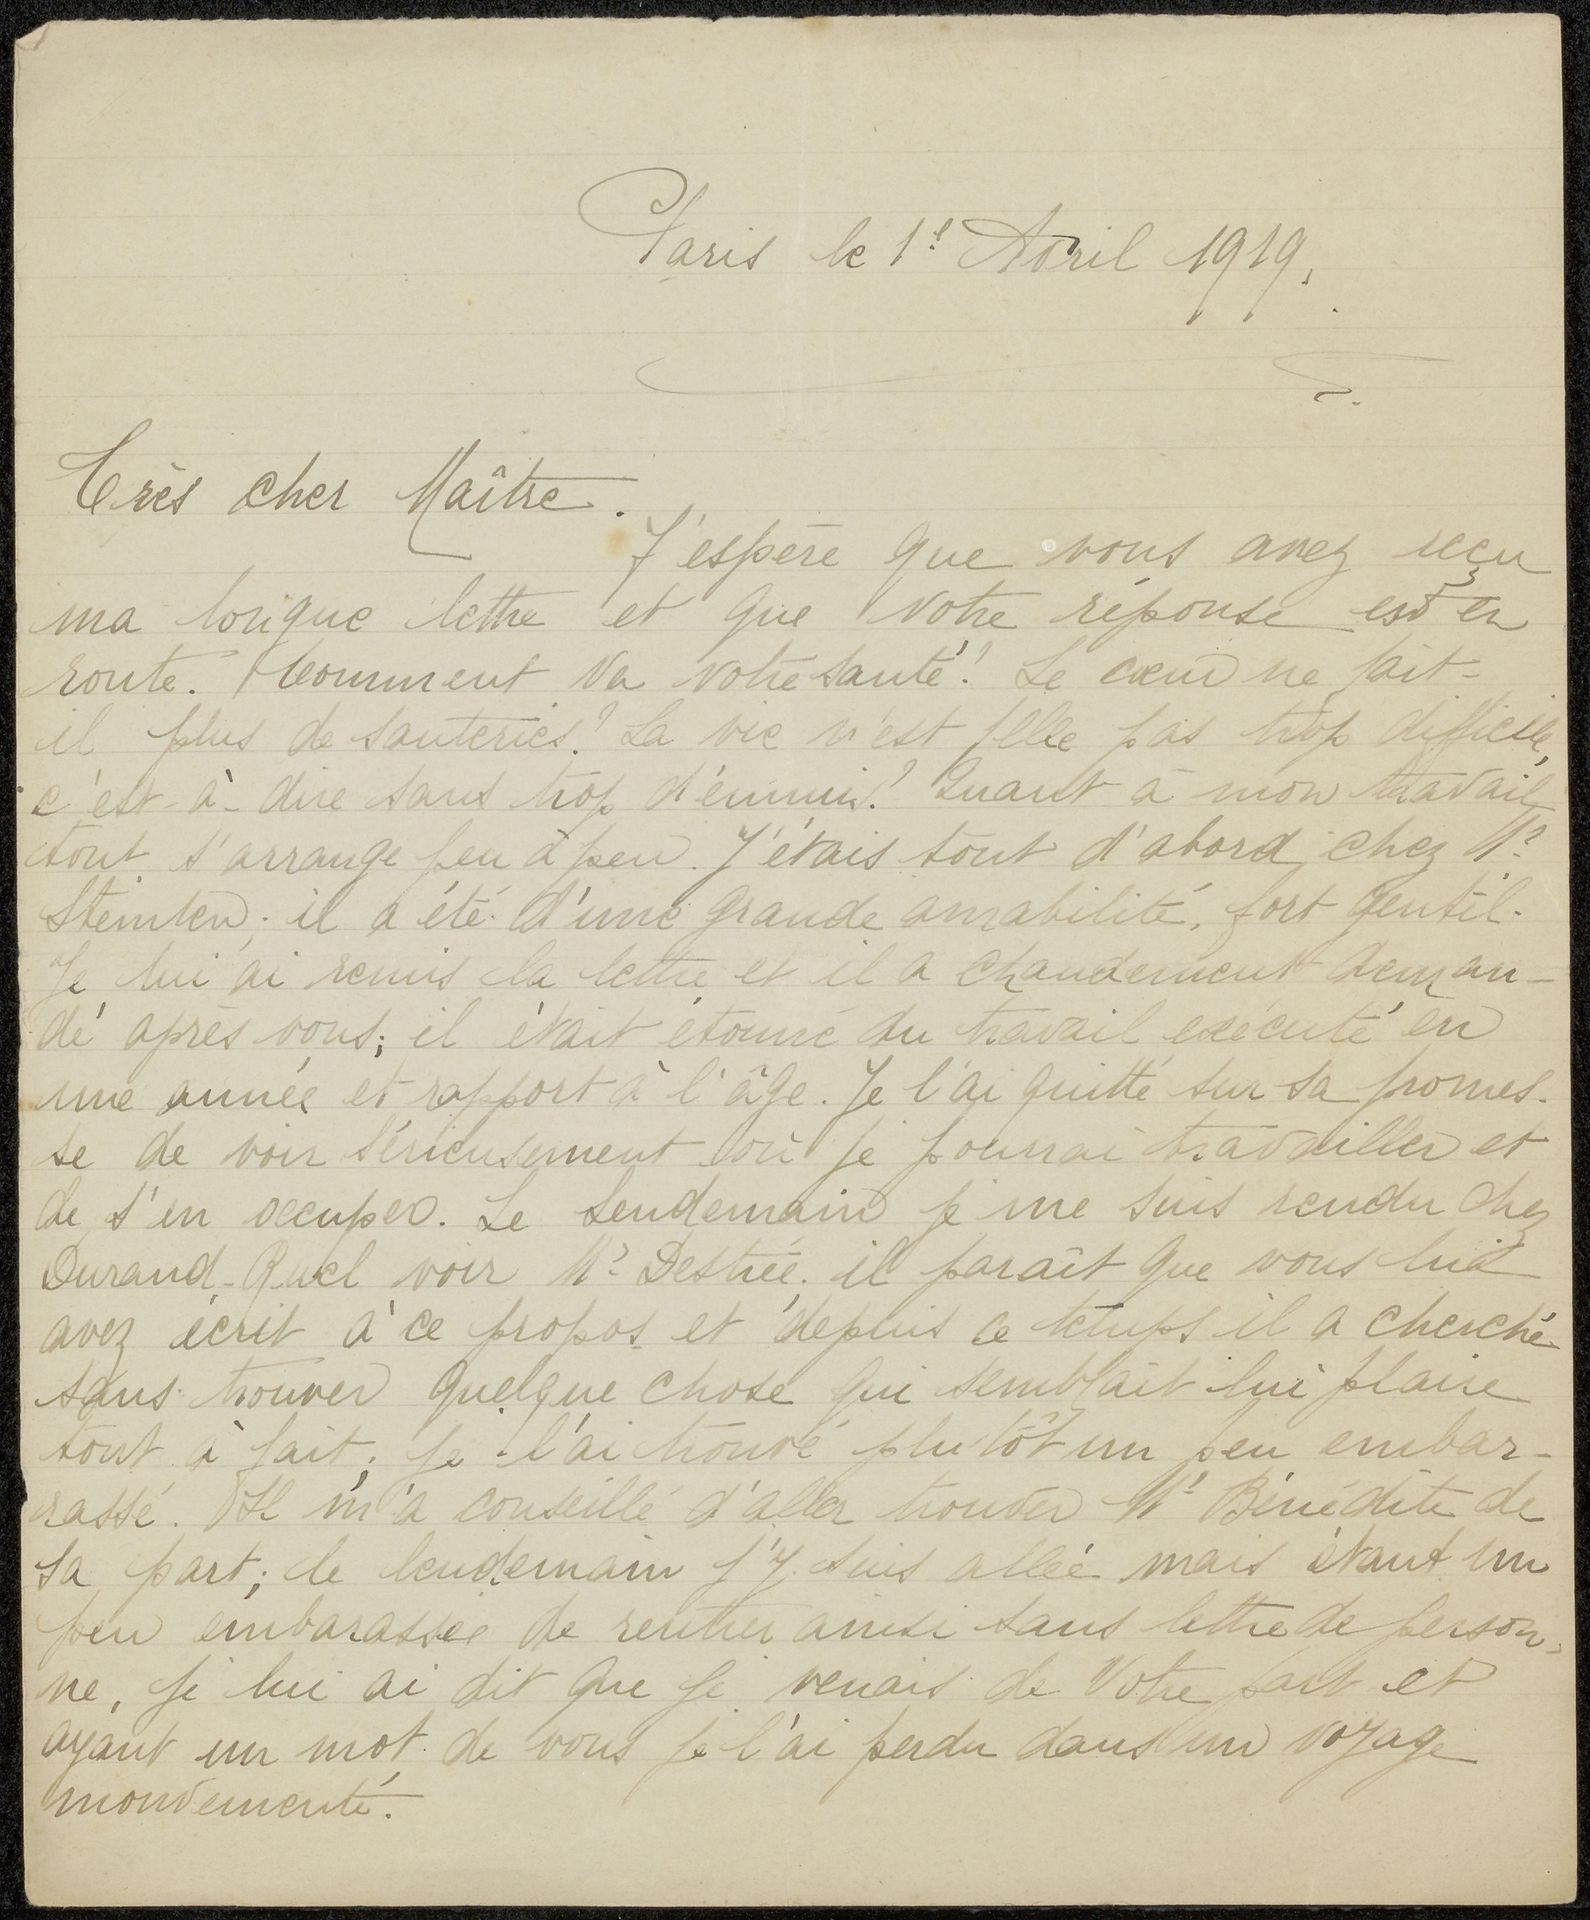 Paris le 1er Avril 1919.
Très cher Maître.
J'espère que vous avez reçu
ma longue lettre et que votre réponse est en
route. Comment va votre santé? Le cœur ne fait-
il plus de sauteries? La vie n'est elle pas trop difficile,
c'est-à-dire sans trop d'ennuis? Quant à mon travail
tout s'arrange peu à peu. J'étais tout d'abord chez Mr
Steinlen; il a été d'une grande amabilité, fort gentil.
Je lui ai remis la lettre et il a chaudement deman-
dé après vous; il était étonné du travail exécuté en
une année et rapport à l'âge. Je l'ai quitté sur sa promes-
se de voir sérieusement où je pourrai travailler et
de s'en occuper. Le lendemain je me suis rendu chez
Durand-Ruel voir Mr Destrée; il paraît que vous lui
avez écrit à ce propos et depuis ce temps il a cherché
sans trouver quelque chose qui semblait lui plaire
tout à fait; je l'ai trouvé plutôt un peu embar-
rassé. Il m'a conseillé d'aller trouver Mr Bénédite de
sa part; le lendemain j'y suis allée mais étant un
peu embarassée de rentrer ainsi sans lettre de person-
ne, je lui ai dit que je venais de votre part et
ayant un mot de vous je l'ai perdu dans un voyage
mouvementé.